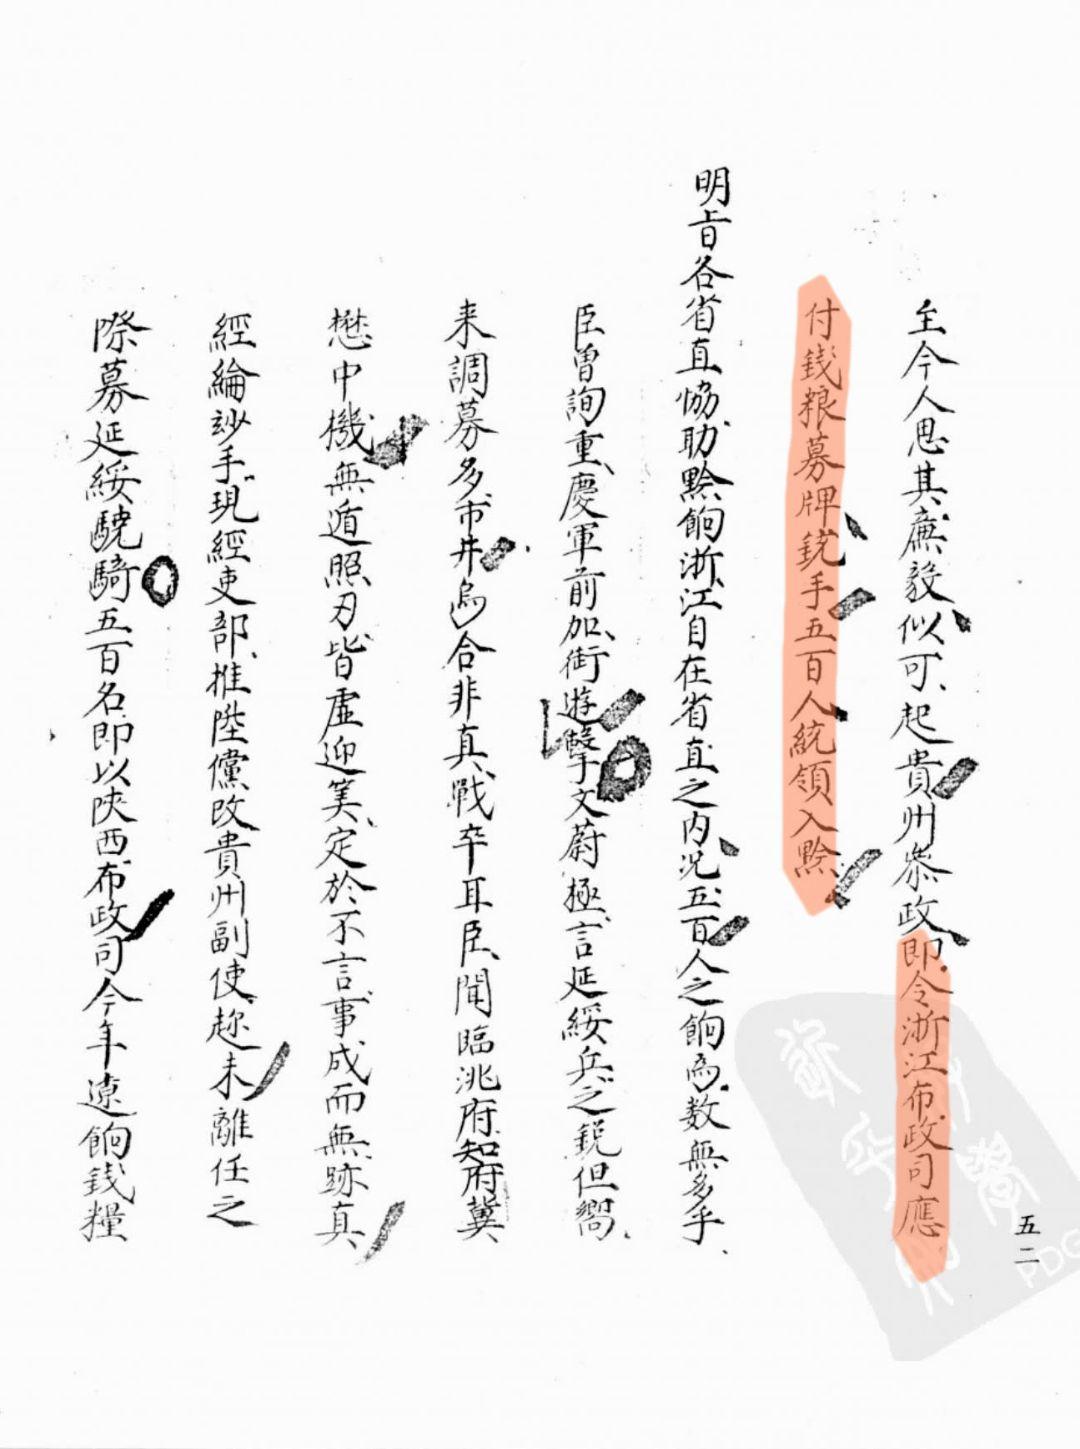 至今人思其廉毅似可起貴州叅政即令浙江布政司應
付錢粮募牌銃手五百人統領入黔
明旨各省直協助黔餉浙江自在省直之内况五百人之餉為数無多乎
臣曾詢重慶軍前加銜遊擊文蔚極言延綏兵之銳但嚮
来調募多市井烏合非真戰卒耳臣聞臨洮府知府冀
懋中機無遁照刃皆虛迎筭定於不言事成而無跡真
經綸玅手現經吏部推陞儻改貴州副使趂未離任之
際募延綏驍騎五百名即以陜西布政司今年遼餉錢糧
五二
PDG